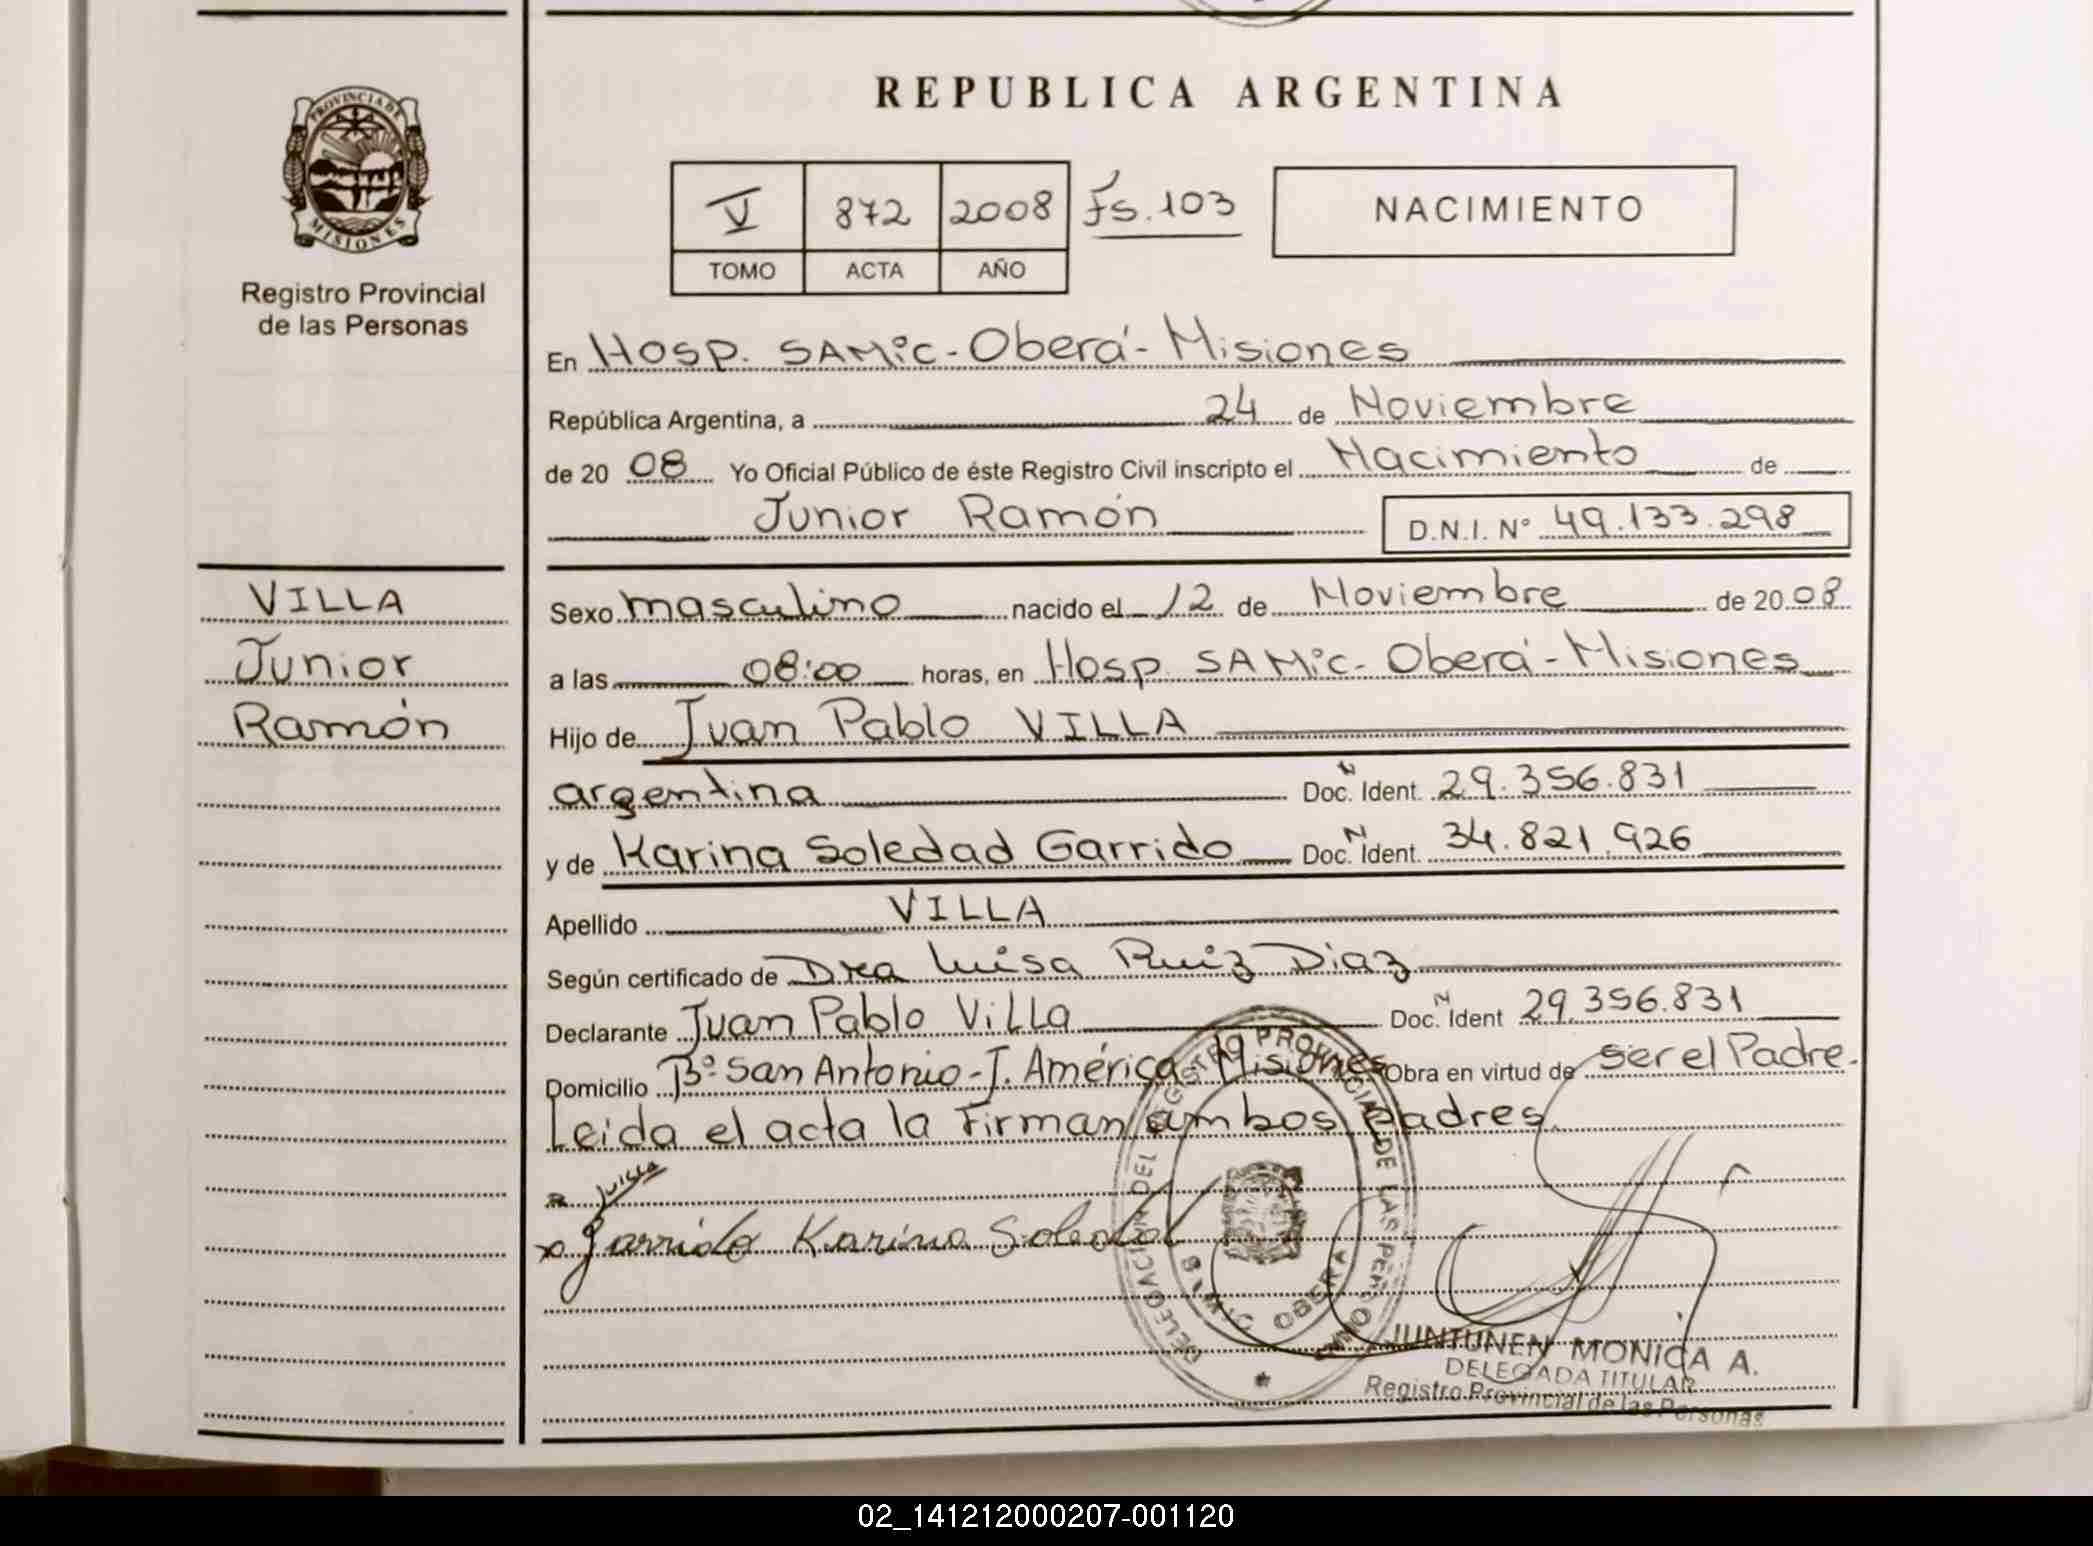 REPUBLICA ARGENTINA
PROVINCIA DE
MISIONES
Registro Provincial
de las Personas
V 872 2008 Fs.103
TOMO ACTA AÑO
NACIMIENTO
En Hosp. SAMiC - Oberá - Misiones
República Argentina, a 24 de Noviembre
de 20 08 Yo Oficial Público de éste Registro Civil inscripto el Nacimiento de
Junior Ramón D.N.I. N° 49.133.298
VILLA
Junior
Ramón
Sexo masculino nacido el 12 de Noviembre de 20 08
a las 08:00 horas, en Hosp. SAMiC - Oberá - Misiones
Hijo de Juan Pablo VILLA
argentina Doc. N Ident. 29.356.831
y de Karina Soledad Garrido Doc. N Ident. 34.821.926
Apellido VILLA
Según certificado de Dra Luisa Ruiz Diaz
Declarante Juan Pablo Villa Doc. N Ident 29.356.831
Domicilio B° San Antonio - J. América Misiones Obra en virtud de ser el Padre.
Leida el acta la Firman ambos padres
x Garrido Karina Soledad
DELEGACION DEL REGISTRO PROVINCIAL DE LAS PERSONAS
SAMIC OBERA
JUNTUNEN MONICA A.
DELEGADA TITULAR
Registro Provincial de las Personas
02_141212000207-001120